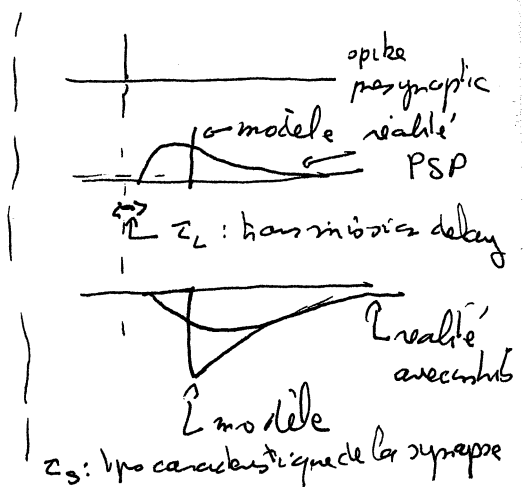 spike
presynaptic
← modèle réalité
PSP
τL : transmission delay
réalité
avec inhib
modèle
τs : tps caractéristique de la synapse